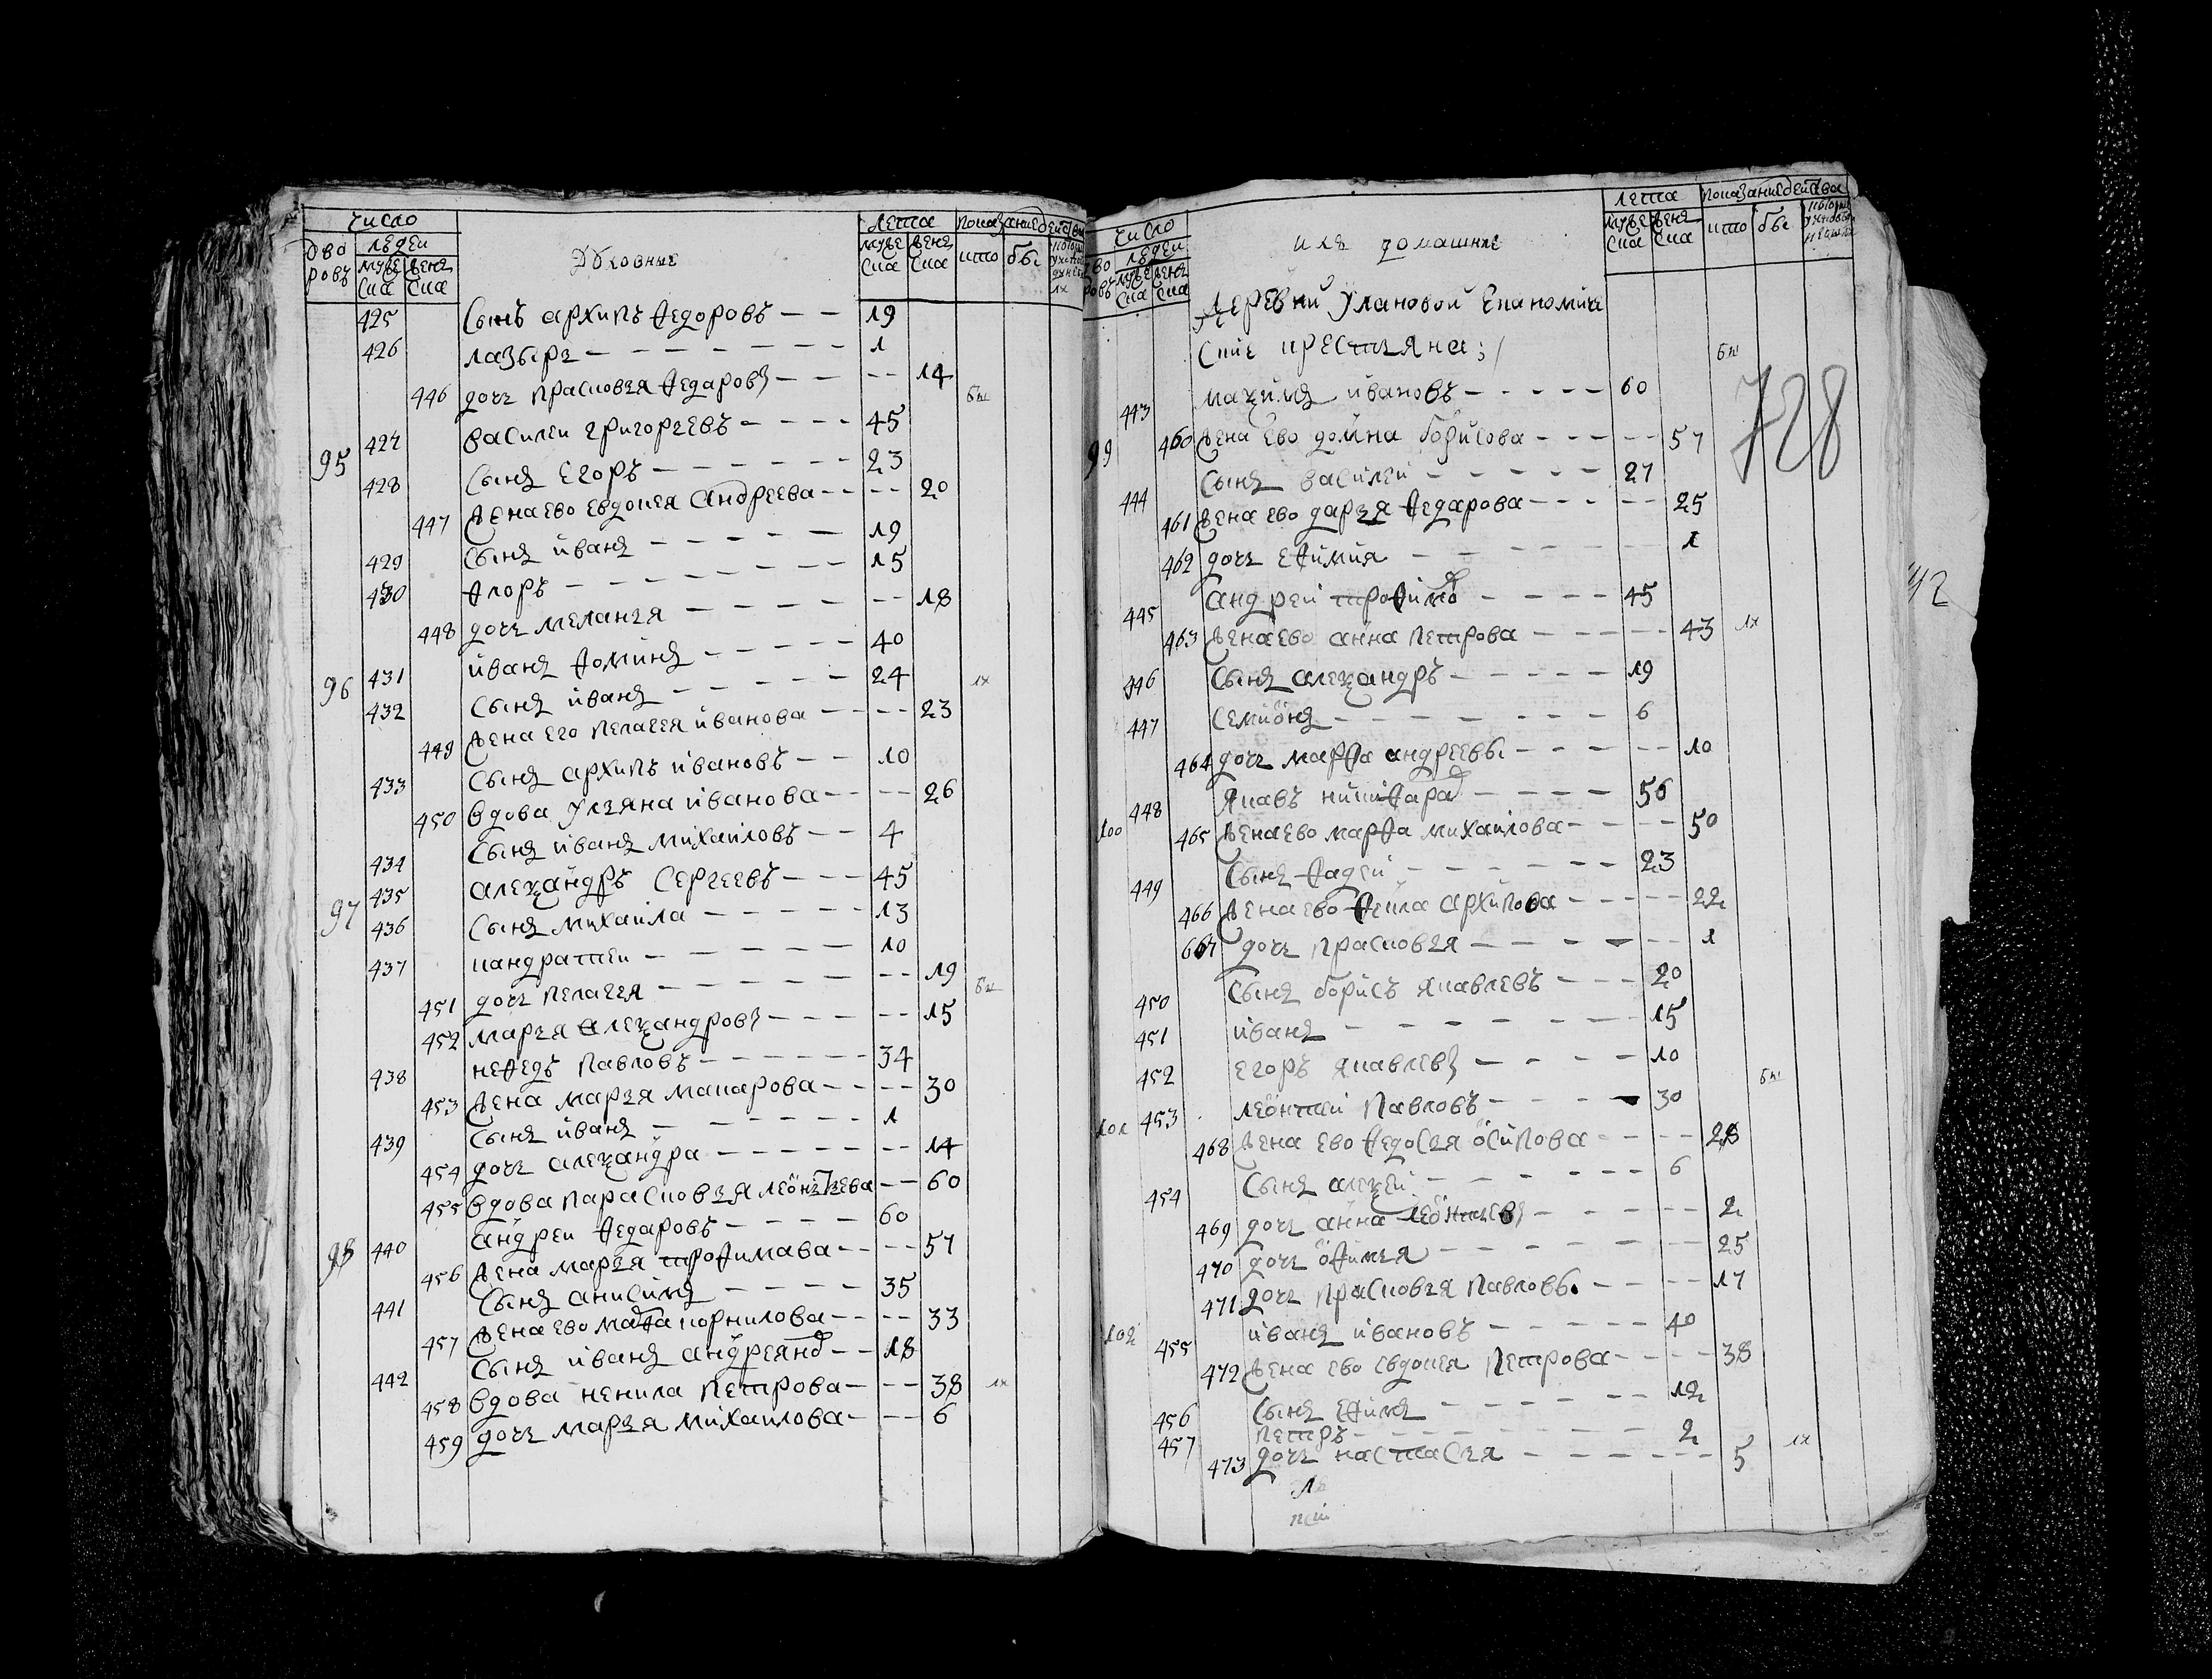 число
лета
показание действа
дво
ровъ
людеи
муже
ска
женс
ска
Духовные
муже
ска
женс
ска
кто
бы
425 сынъ архипъ федоровъ — — 19
426 лазырь — — — — — — 1
446 дочь прасковья федаров — — — — 14
95 427 василеи григорьевъ — — — — 45
428 сынъ егоръ — — — — — — 23
447 жена ево евдокея андреева — — — — 20
429 сынъ иванъ — — — — — 19
430 флоръ — — — — — — — 15
448 дочь меланья — — — — — — 18
96 431 иванъ фоминъ — — — — — 40
432 сынъ иванъ — — — — — 24
449 жена его пелагея иванова — — — — 23
433 сынъ архипъ ивановъ — — 10
450 вдова ульяна иванова — — — — 26
434 сынъ иванъ михаиловъ — — 4
97 435 алеѯандръ сергеевъ — — — 45
436 сынъ михаила — — — — — 13
437 кандратеи — — — — — 10
451 дочь пелагея — — — — — — — 19
452 марья алеѯандров — — — — — — 15
438 нефедъ павловъ — — — — — — 34
453 жена марья макарова — — — — 30
439 сынъ иванъ — — — — — 1
454 дочь алеѯандра — — — — — — — 14
455 вдова парасковья леонтьева — — 60
98 440 андреи федаровъ — — — — 60
456 жена марья трофимава — — — — 57
441 сынъ анисимъ — — — — 35
457 жена ево мафа корнилова — — — — 33
442 сынъ иванъ андреянов — — 18
458 вдова ненила петрова — — — 38
459 дочь марья михаилова — — — 6
число
лета
показание действа
дво
ровъ
людеи
муже
ска
женс
ска
иль домашние
муже
ска
женс
ска
кто
бы
деревни улановой економиче
ские крестьяна;
728
99 443 маѯимъ ивановъ — — — — — 60
460 жена ево домна борисова — — — — — 57
444 сынъ василеи — — — — — 27
461 жена ево дарья федарова — — — — — 25
462 дочь ефимия — — — — — 1
445 андреи трофимов — — — — 45
463 жена ево анна петрова — — — — — 43
346 сынъ алеѯандръ — — — — — 19
447 семионъ — — — — — — — 6
464 дочь марфа андреевы — — — — — 10
100 448 яковъ никифаров — — — — 56
465 жена ево марфа михаилова — — — — — 50
449 сынъ фадеи — — — — — — 23
466 жена ево фекла архипова — — — — — 22
667 дочь прасковья — — — — — — 1
450 сынъ борисъ яковлевъ — — — 20
451 иванъ — — — — — — — 15
452 егоръ яковлев — — — — 10
101 453 леонтеи павловъ — — — — 30
468 жена ево федосья осипова — — — — 28
454 сынъ алеѯеи — — — — — 6
469 дочь анна леонтьев — — — — — — 2
470 дочь офимья — — — — — — — 25
471 дочь прасковья павловы — — — — 17
102 455 иванъ ивановъ — — — — — 40
472 жена ево евдокея петрова — — — — 38
456 сынъ ефимъ — — — — — — 12
457 петръ — — — — — — 2
473 дочь настасья — — — — — — 5
42